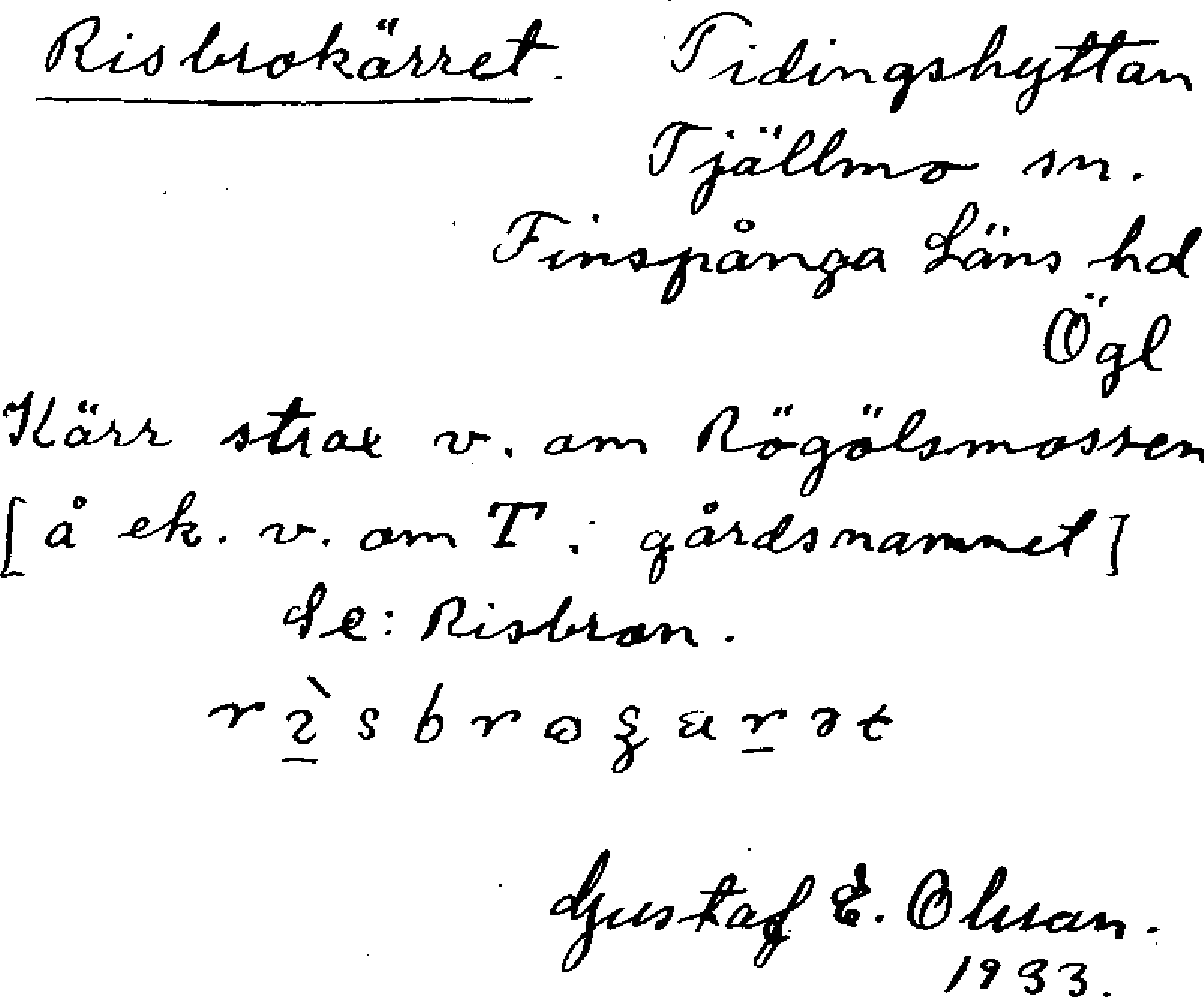 Risbrokärret. Tidingshyttan
Tjällmo sn.
Finspånga Läns hd
Ögl
Kärr strax v. om Rögölsmossen
[å ek. v. om T. i gårdsnamnet]
Se: Risbron.
Gustaf E. Olsson.
1933.